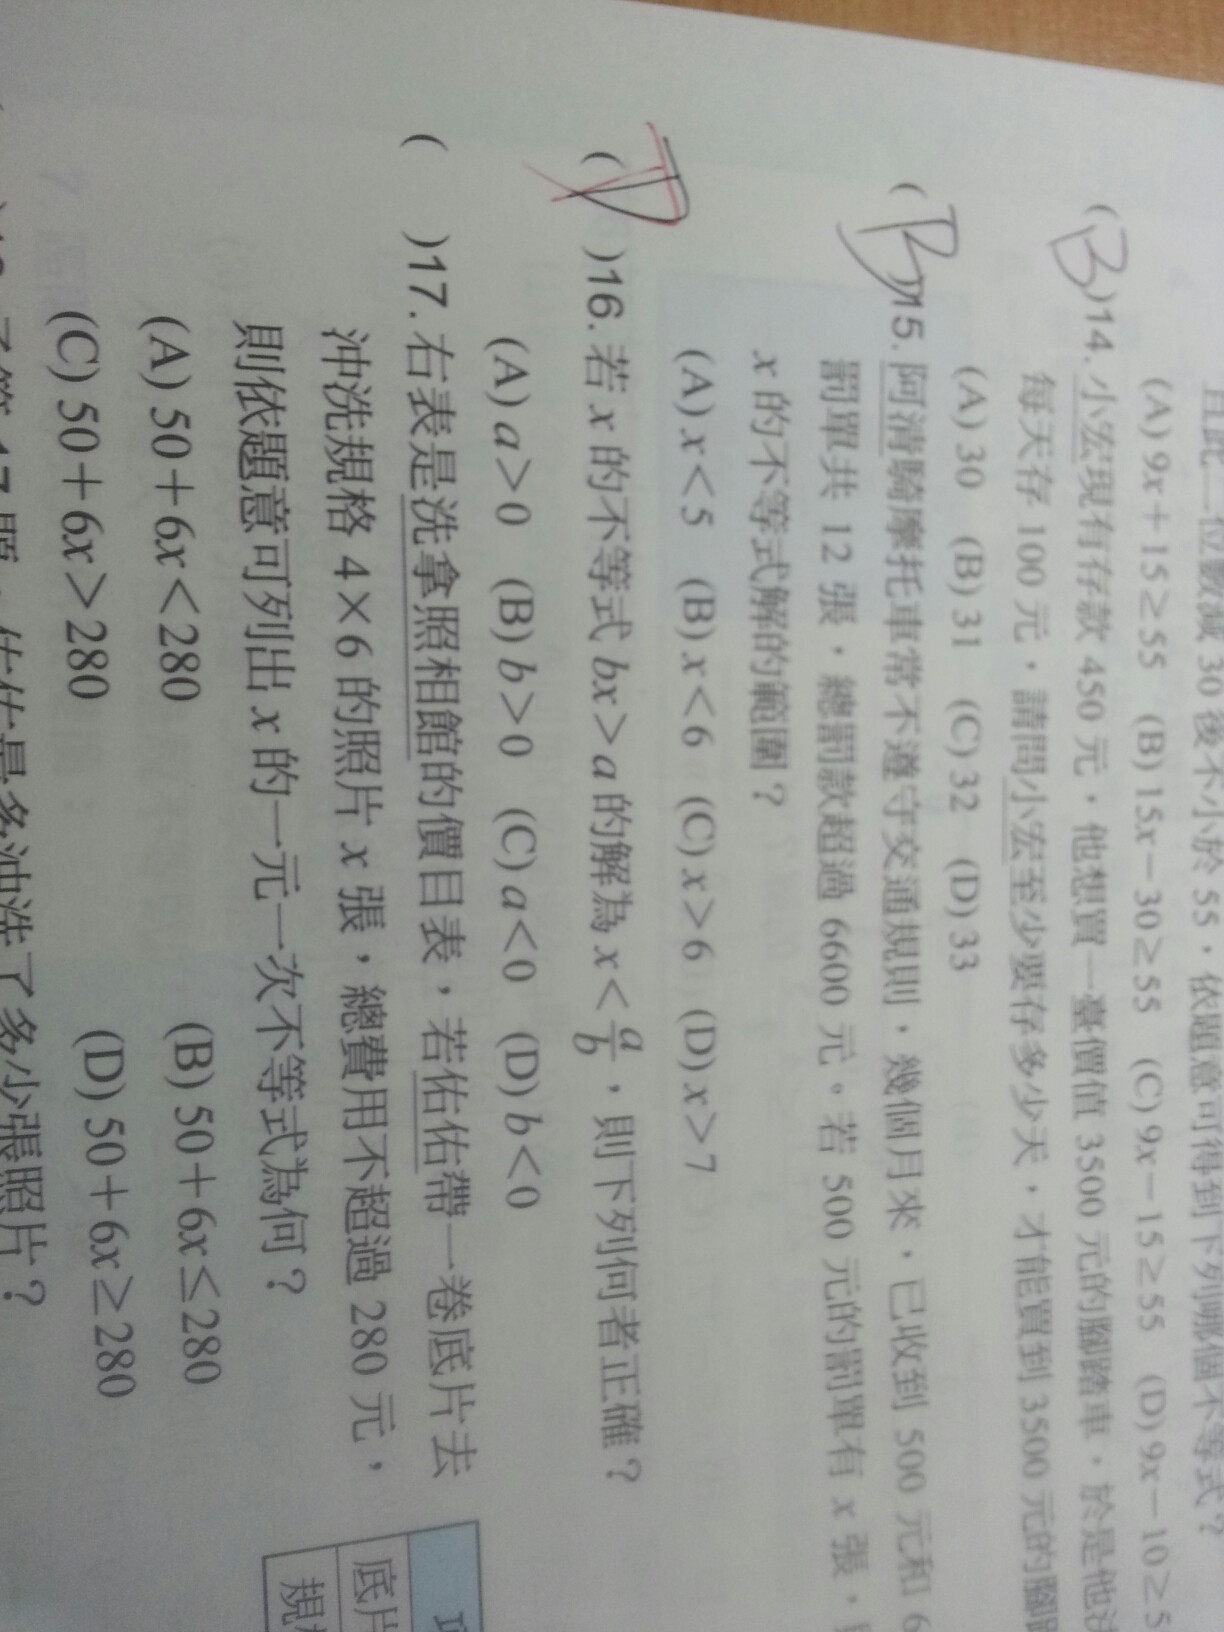 且此一位數減 30 後不小於 55，依題意可得到下列哪個不等式？
(A) 9x＋15≥55 (B) 15x－30≥55 (C) 9x－15≥55 (D) 9x－10≥5
(B)14. 小宏現有存款 450 元，他想買一臺價值 3500 元的腳踏車，於是他決
每天存 100 元，請問小宏至少要存多少天，才能買到 3500 元的腳踏
(A) 30 (B) 31 (C) 32 (D) 33
(B)15. 阿清騎摩托車常不遵守交通規則，幾個月來，已收到 500 元和 6
罰單共 12 張，總罰款超過 6600 元。若 500 元的罰單有 x 張，
x 的不等式解的範圍？
(A) x＜5 (B) x＜6 (C) x＞6 (D) x＞7
(D)16. 若 x 的不等式 bx＞a 的解為 x＜a/b，則下列何者正確？
(A) a＞0 (B) b＞0 (C) a＜0 (D) b＜0
( )17. 右表是洗拿照相館的價目表，若佑佑帶一卷底片去
沖洗規格 4×6 的照片 x 張，總費用不超過 280 元，
則依題意可列出 x 的一元一次不等式為何？
(A) 50＋6x＜280 (B) 50＋6x≤280
(C) 50＋6x＞280 (D) 50＋6x≥280
17 題，佑佑最多沖洗了多少張照片？
項
底片
規